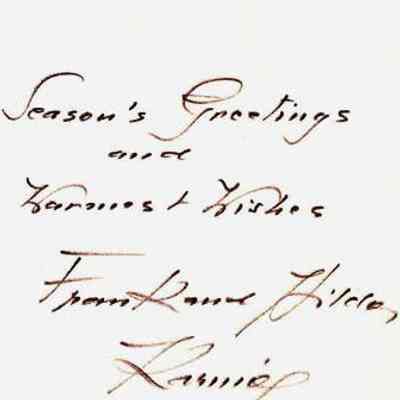 Season's Greetings
and
Warmest Wishes
Frank and Hilda,